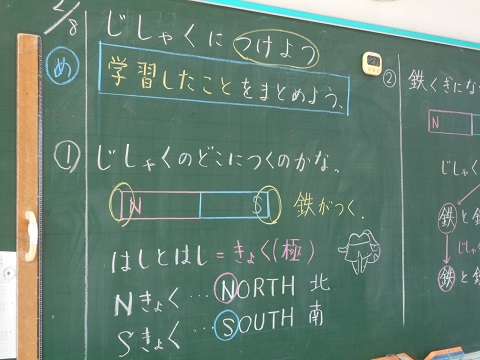 2/8
じしゃくに つけよう
め
学習したことをまとめよう。
① じしゃくのどこにつくのかな。
N S 鉄がつく.
はしとはし=きょく(極)
Nきょく…NORTH 北
Sきょく…SOUTH 南
② 鉄くぎにな
N
じしゃ
鉄と
じしゃ
鉄と